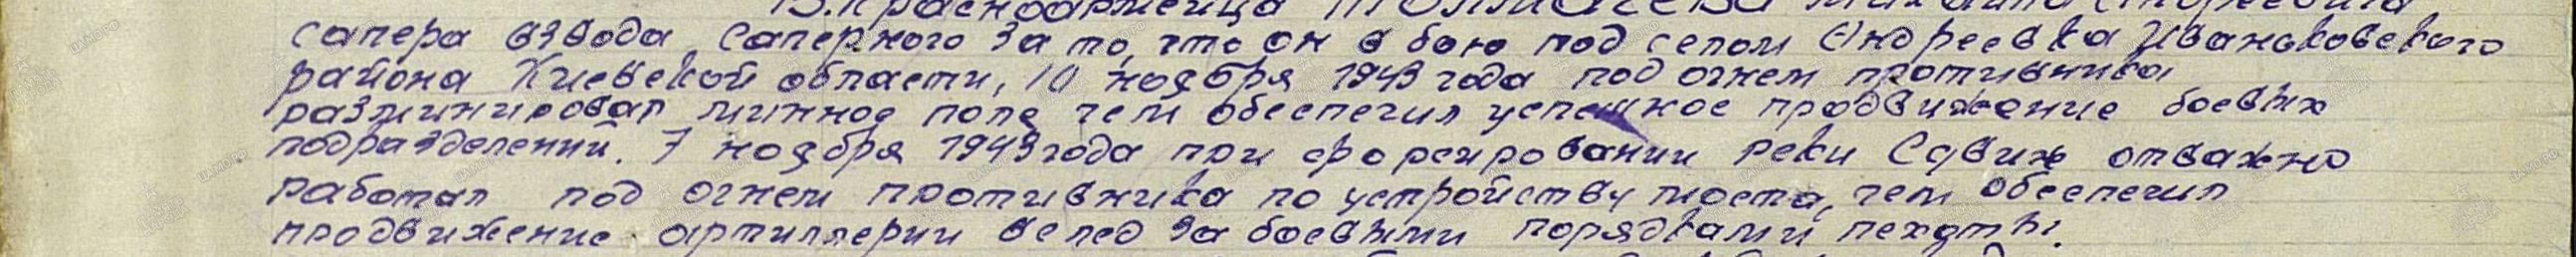 13. Красноармейца ТОЛМАЧЕВА Михаила Андреевича
сапера взвода саперного за то, что он в бою под селом Андреевка Иваньковского
района Киевской области, 10 ноября 1943 года под огнем противника
разминировал минное поле чем обеспечил успешное продвижение боевых
подразделений. 7 ноября 1943 года при форсировании реки Сдвиж отважно
работал под огнем противника по устройству моста, чем обеспечил
продвижение артиллерии вслед за боевыми порядками пехоты.